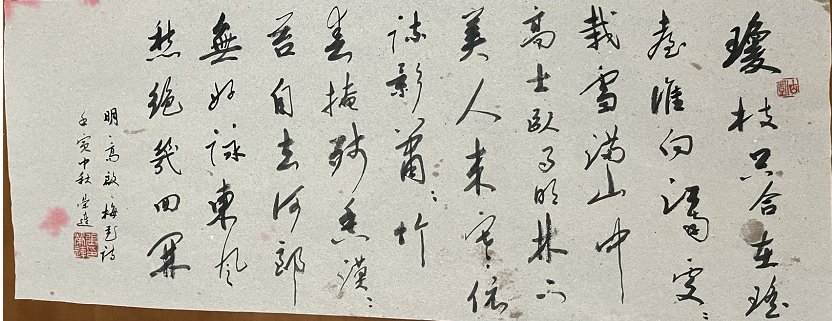 瓊枝只合在瑤
臺誰向江南處〻
栽雪滿山中
高士臥月明林下
美人來寒依
疏影蕭〻竹
春掩殘香漠〻
苔自去何郎
無好詠東風
愁絕幾回開
明高啟梅花詩
壬寅中秋